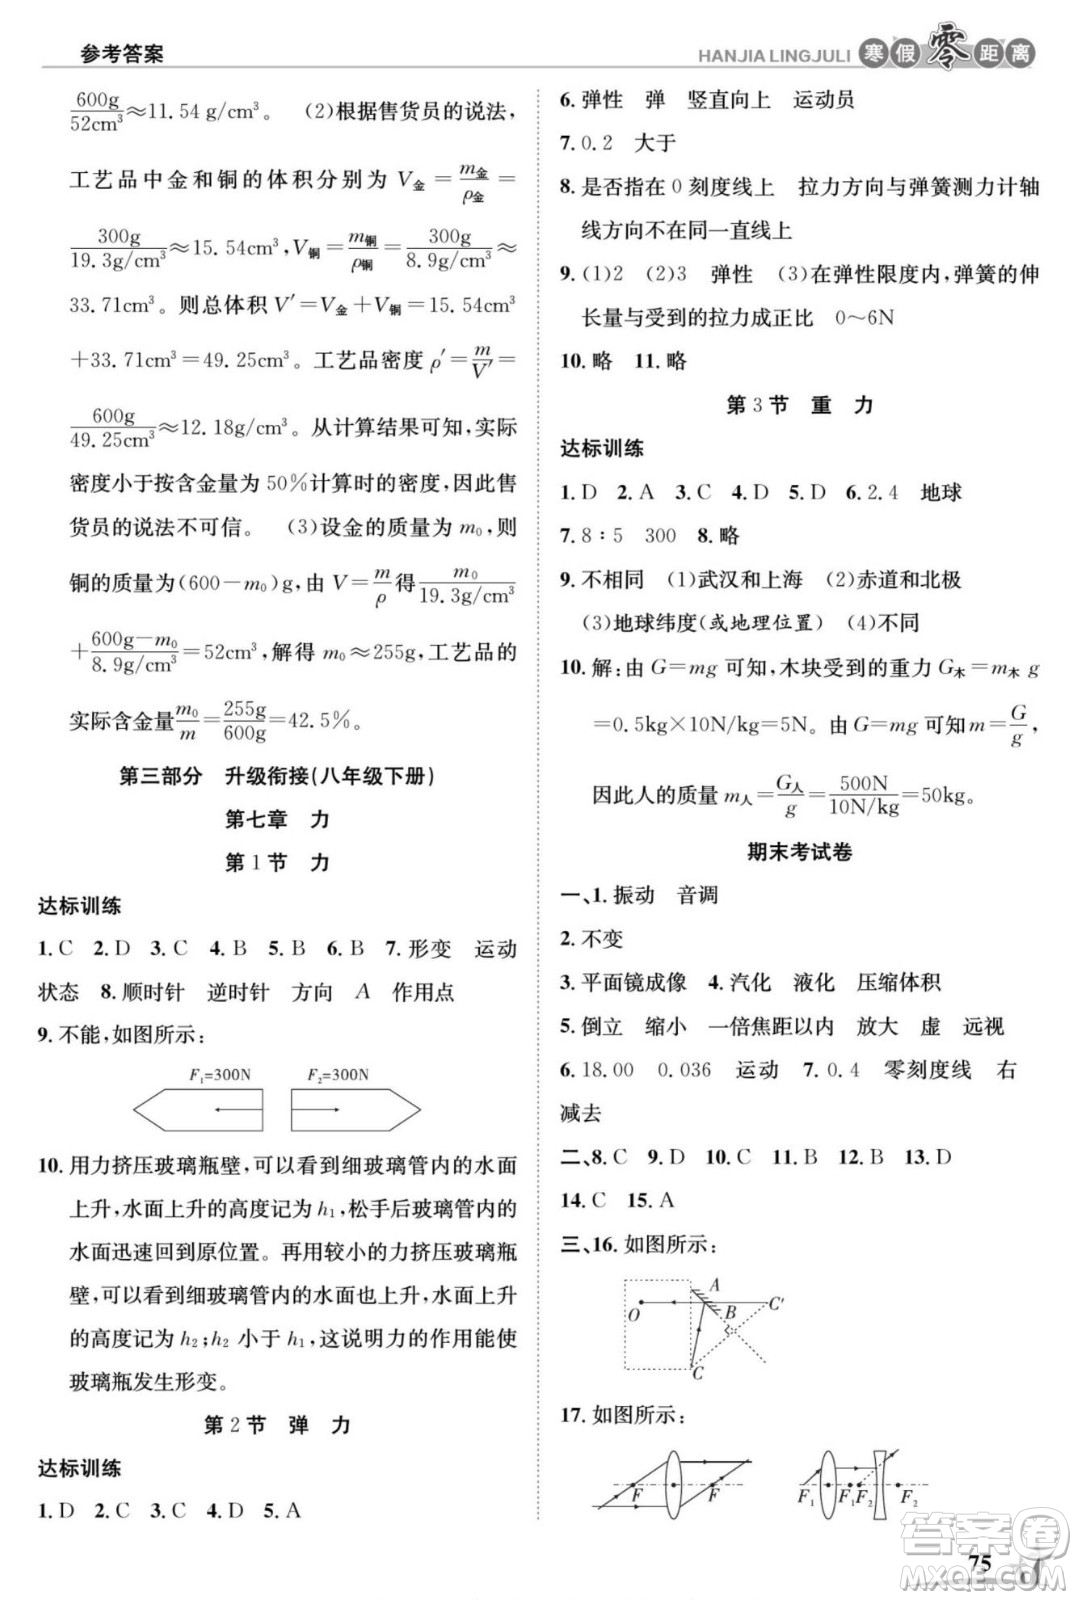 参考答案
HANJIA LINGJULI 寒假零距离
600g/52cm³≈11.54 g/cm³。 (2)根据售货员的说法,
工艺品中金和铜的体积分别为 V金=m金/ρ金=
300g/19.3g/cm³≈15.54cm³,V铜=m铜/ρ铜=300g/8.9g/cm³≈
33.71cm³。则总体积 V′=V金+V铜=15.54cm³
+33.71cm³=49.25cm³。工艺品密度 ρ′=m/V′=
600g/49.25cm³≈12.18g/cm³。从计算结果可知,实际
密度小于按含金量为 50%计算时的密度,因此售
货员的说法不可信。 (3)设金的质量为 m₀,则
铜的质量为(600-m₀)g,由 V=m/ρ得m₀/19.3g/cm³
+600g-m₀/8.9g/cm³=52cm³,解得 m₀≈255g,工艺品的
实际含金量m₀/m=255g/600g=42.5%。
第三部分 升级衔接(八年级下册)
第七章 力
第1节 力
达标训练
1.C 2.D 3.C 4.B 5.B 6.B 7.形变 运动
状态 8.顺时针 逆时针 方向 A 作用点
9.不能,如图所示:
F₁=300N F₂=300N
10.用力挤压玻璃瓶壁,可以看到细玻璃管内的水面
上升,水面上升的高度记为 h₁,松手后玻璃管内的
水面迅速回到原位置。再用较小的力挤压玻璃瓶
壁,可以看到细玻璃管内的水面也上升,水面上升
的高度记为 h₂;h₂ 小于 h₁,这说明力的作用能使
玻璃瓶发生形变。
第2节 弹 力
达标训练
1.D 2.C 3.B 4.D 5.A
6.弹性 弹 竖直向上 运动员
7.0.2 大于
8.是否指在 0 刻度线上 拉力方向与弹簧测力计轴
线方向不在同一直线上
9.(1)2 (2)3 弹性 (3)在弹性限度内,弹簧的伸
长量与受到的拉力成正比 0～6N
10.略 11.略
第3节 重 力
达标训练
1.D 2.A 3.C 4.D 5.D 6.2.4 地球
7.8∶5 300 8.略
9.不相同 (1)武汉和上海 (2)赤道和北极
(3)地球纬度(或地理位置) (4)不同
10.解:由 G=mg 可知,木块受到的重力 G木=m木 g
=0.5kg×10N/kg=5N。由 G=mg 可知m=G/g,
因此人的质量 m人=G人/g=500N/10N/kg=50kg。
期末考试卷
一、1.振动 音调
2.不变
3.平面镜成像 4.汽化 液化 压缩体积
5.倒立 缩小 一倍焦距以内 放大 虚 远视
6.18.00 0.036 运动 7.0.4 零刻度线 右
减去
二、8.C 9.D 10.C 11.B 12.B 13.D
14.C 15.A
三、16.如图所示:
A
O B C′
C
17.如图所示:
F F F₁ F₁ F₂ F₂
答案圈
MXQE.COM
75